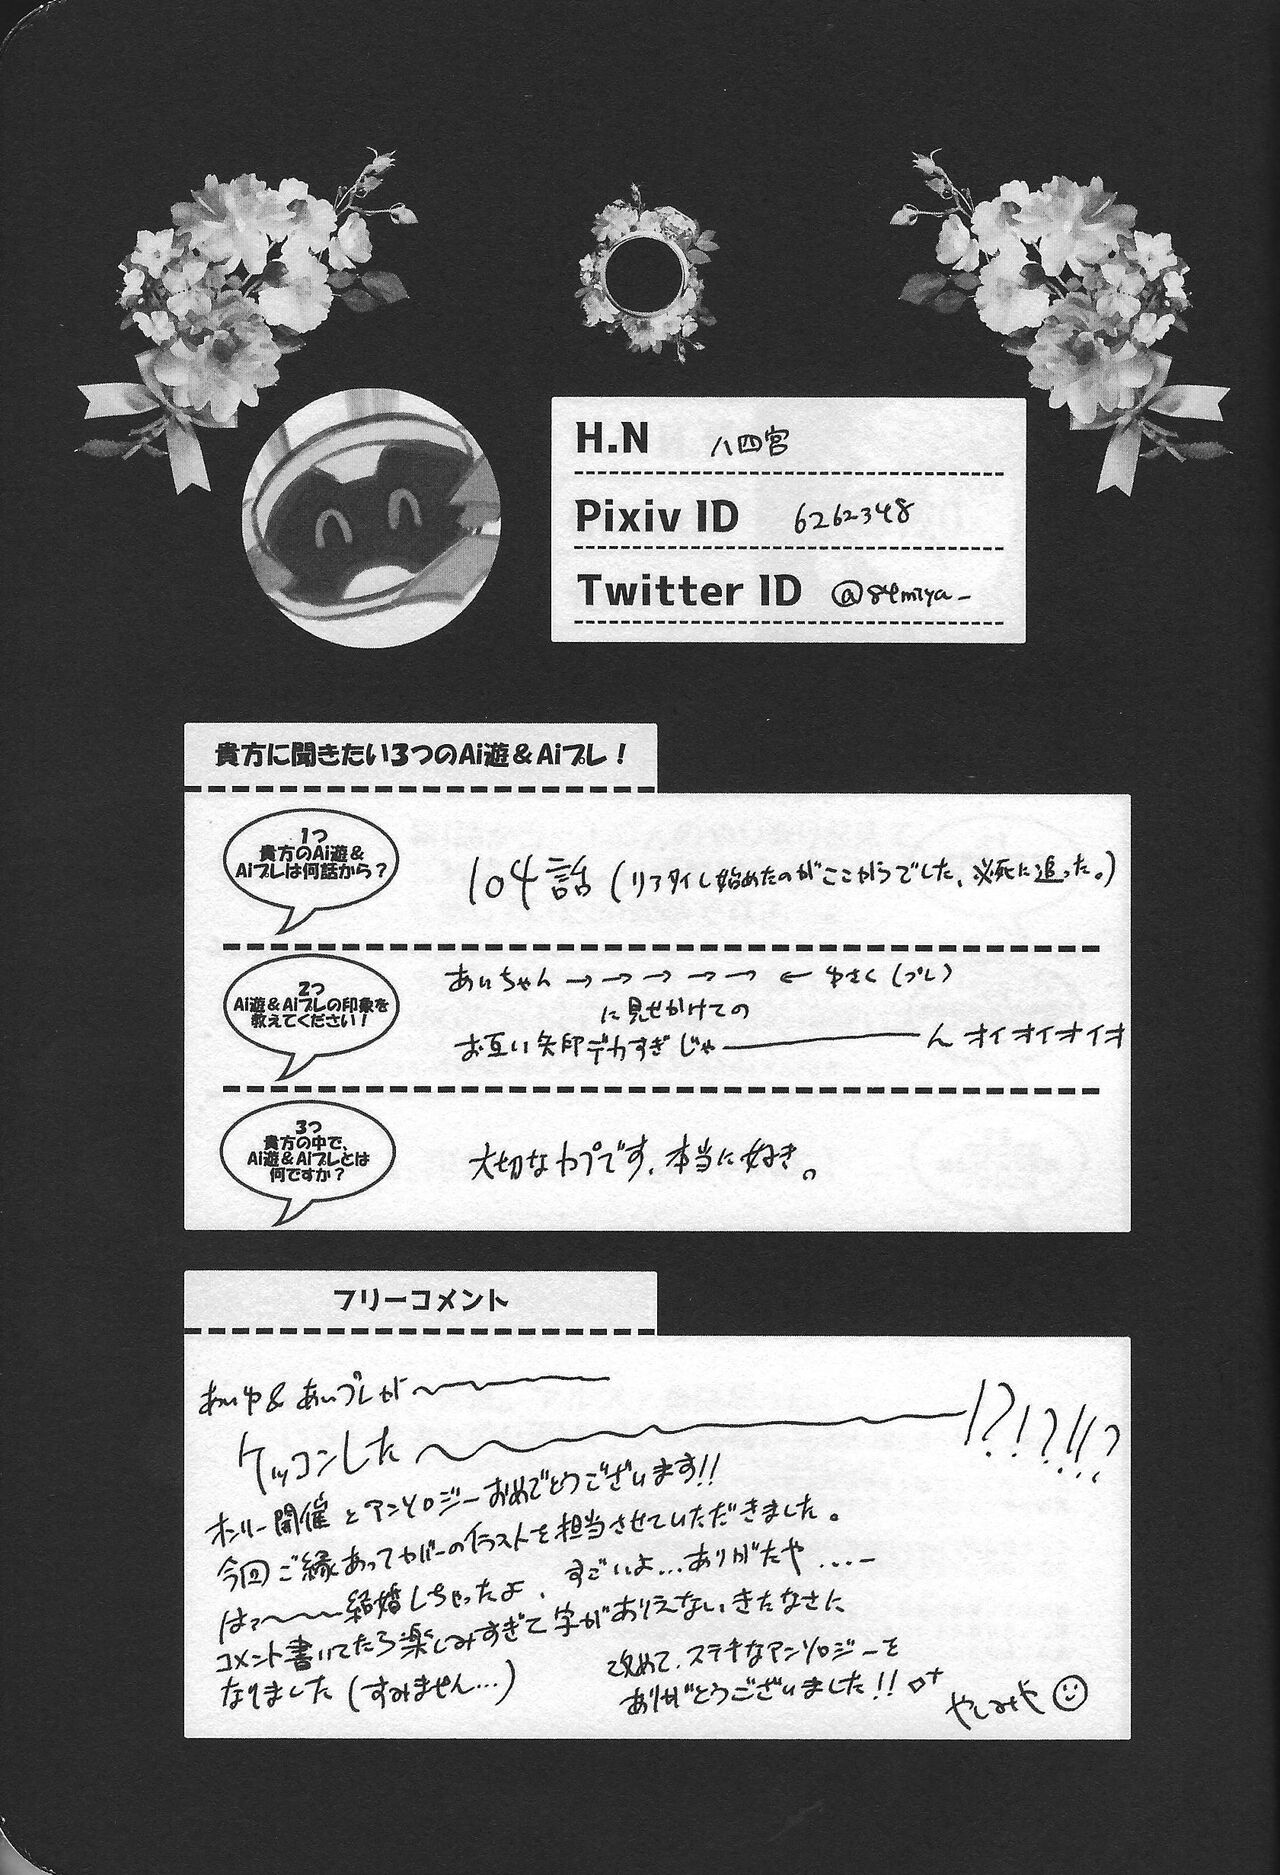 H.N 八四宮
Pixiv ID 6262348
Twitter ID @84miya_
貴方に聞きたい3つのAi遊&Aiプレ!
1つ
貴方のAi遊&
Aiプレは何話から?
104話(リアタイし始めたのがここからでした、必死に追った。)
2つ
Ai遊&Aiプレの印象を
教えてください!
あいちゃん→→→→→ ←ゆさく(プレ)
に見せかけての
お互い矢印デカすぎじゃ――――んオイオイオイオ
3つ
貴方の中で、
Ai遊&Aiプレとは
何ですか?
大切なカプです、本当に好き。
フリーコメント
あいゆ&あいプレが〜〜〜
ケッコンした〜〜〜〜〜!?!?!!?
オンリー開催とアンソロジーおめでとうございます!!
今回ご縁あってカバーのイラストを担当させていただきました。
はァ〜〜〜結婚しちゃったよ、すごいよ...ありがたや....ー
コメント書いてたら楽しみすぎて字がありえないきたなさに
なりました(すみません...)
改めて、ステキなアンソロジーを
ありがとうございました!!
やしみや